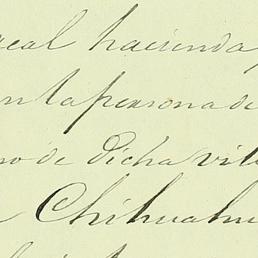 real hacienda,
en la persona de
no de dicha vill
Chihuahu